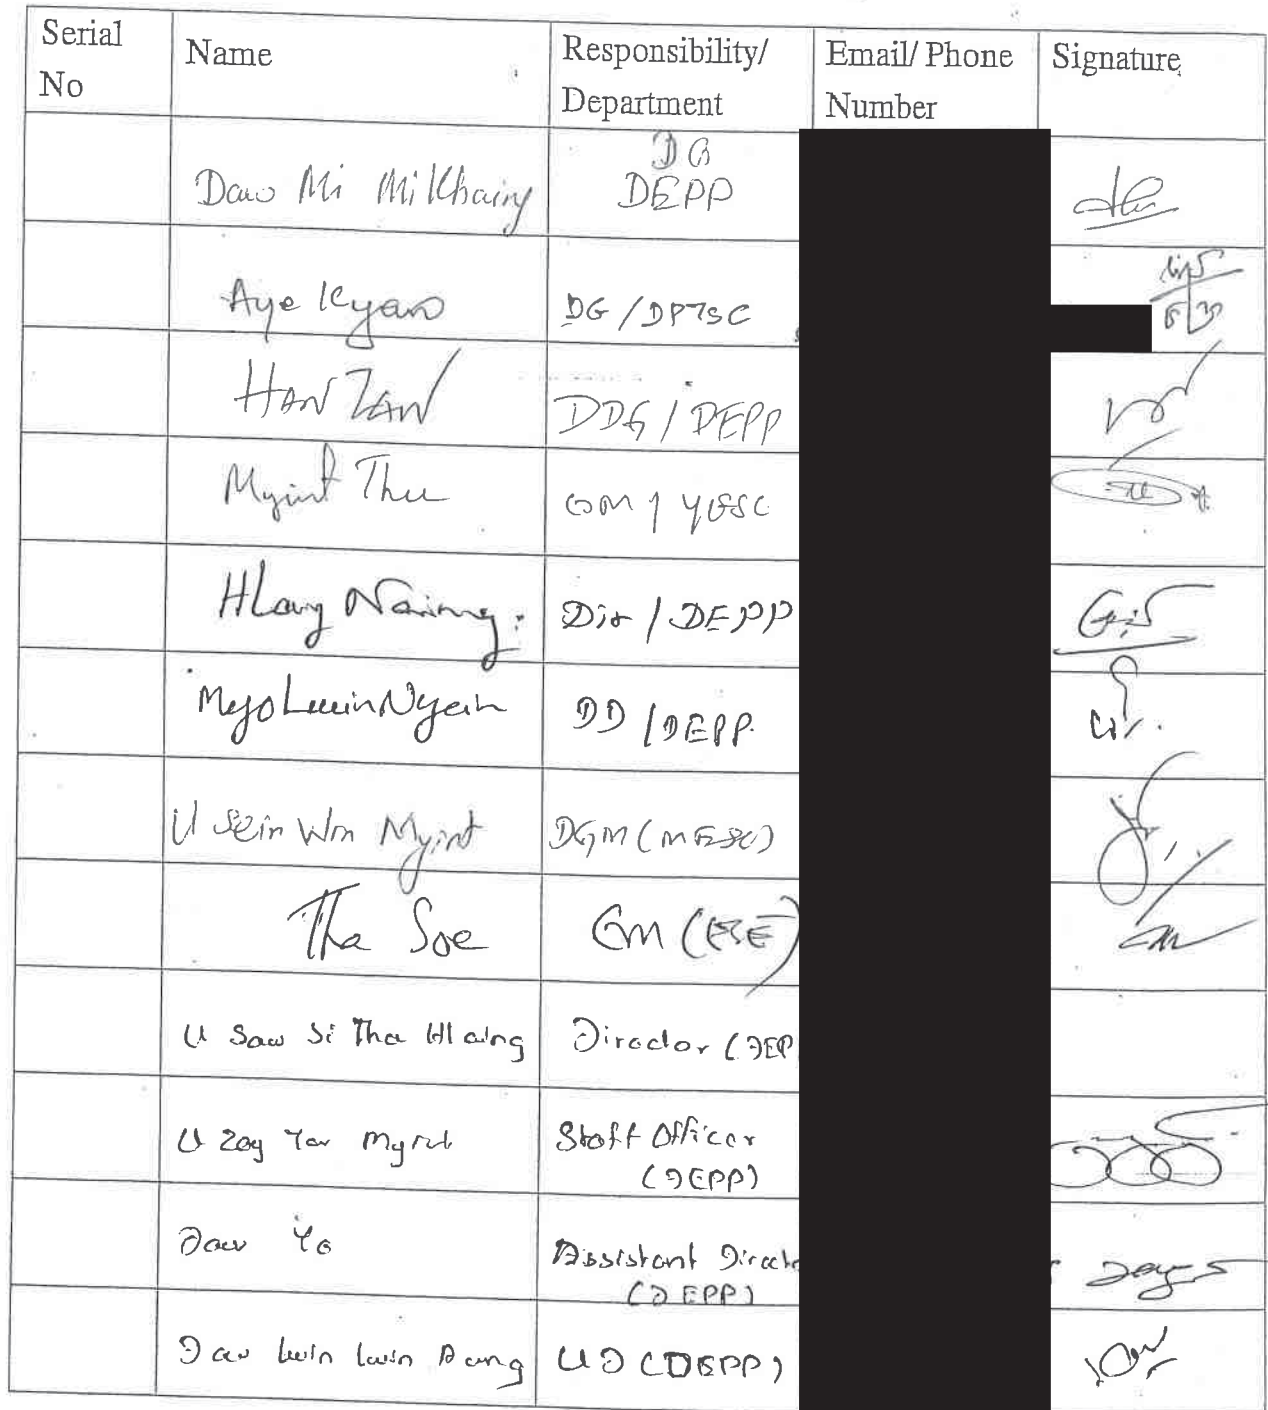 Serial No
Name
Responsibility/ Department
Email/ Phone Number
Signature
Daw Mi Mi Khaing
DG
DEPP
Aye Kyaw
DG/DPTSC
HAN ZAW
DDG/DEPP
Myint Thu
GM / YESC
HLaing Naing.
Dir/DEPP
Myo Lwin Nyein
DD/DEPP.
U Sein Win Myint
DGM (MESC)
Tha Soe
GM (ESE)
U Saw Si Thu Hlaing
Director (DEP
U Zay Yar Myint
Staff Officer
(DEPP)
Daw
Assistant Directo
(DEPP)
Daw Lwin Lwin Aung
UD (DEPP)